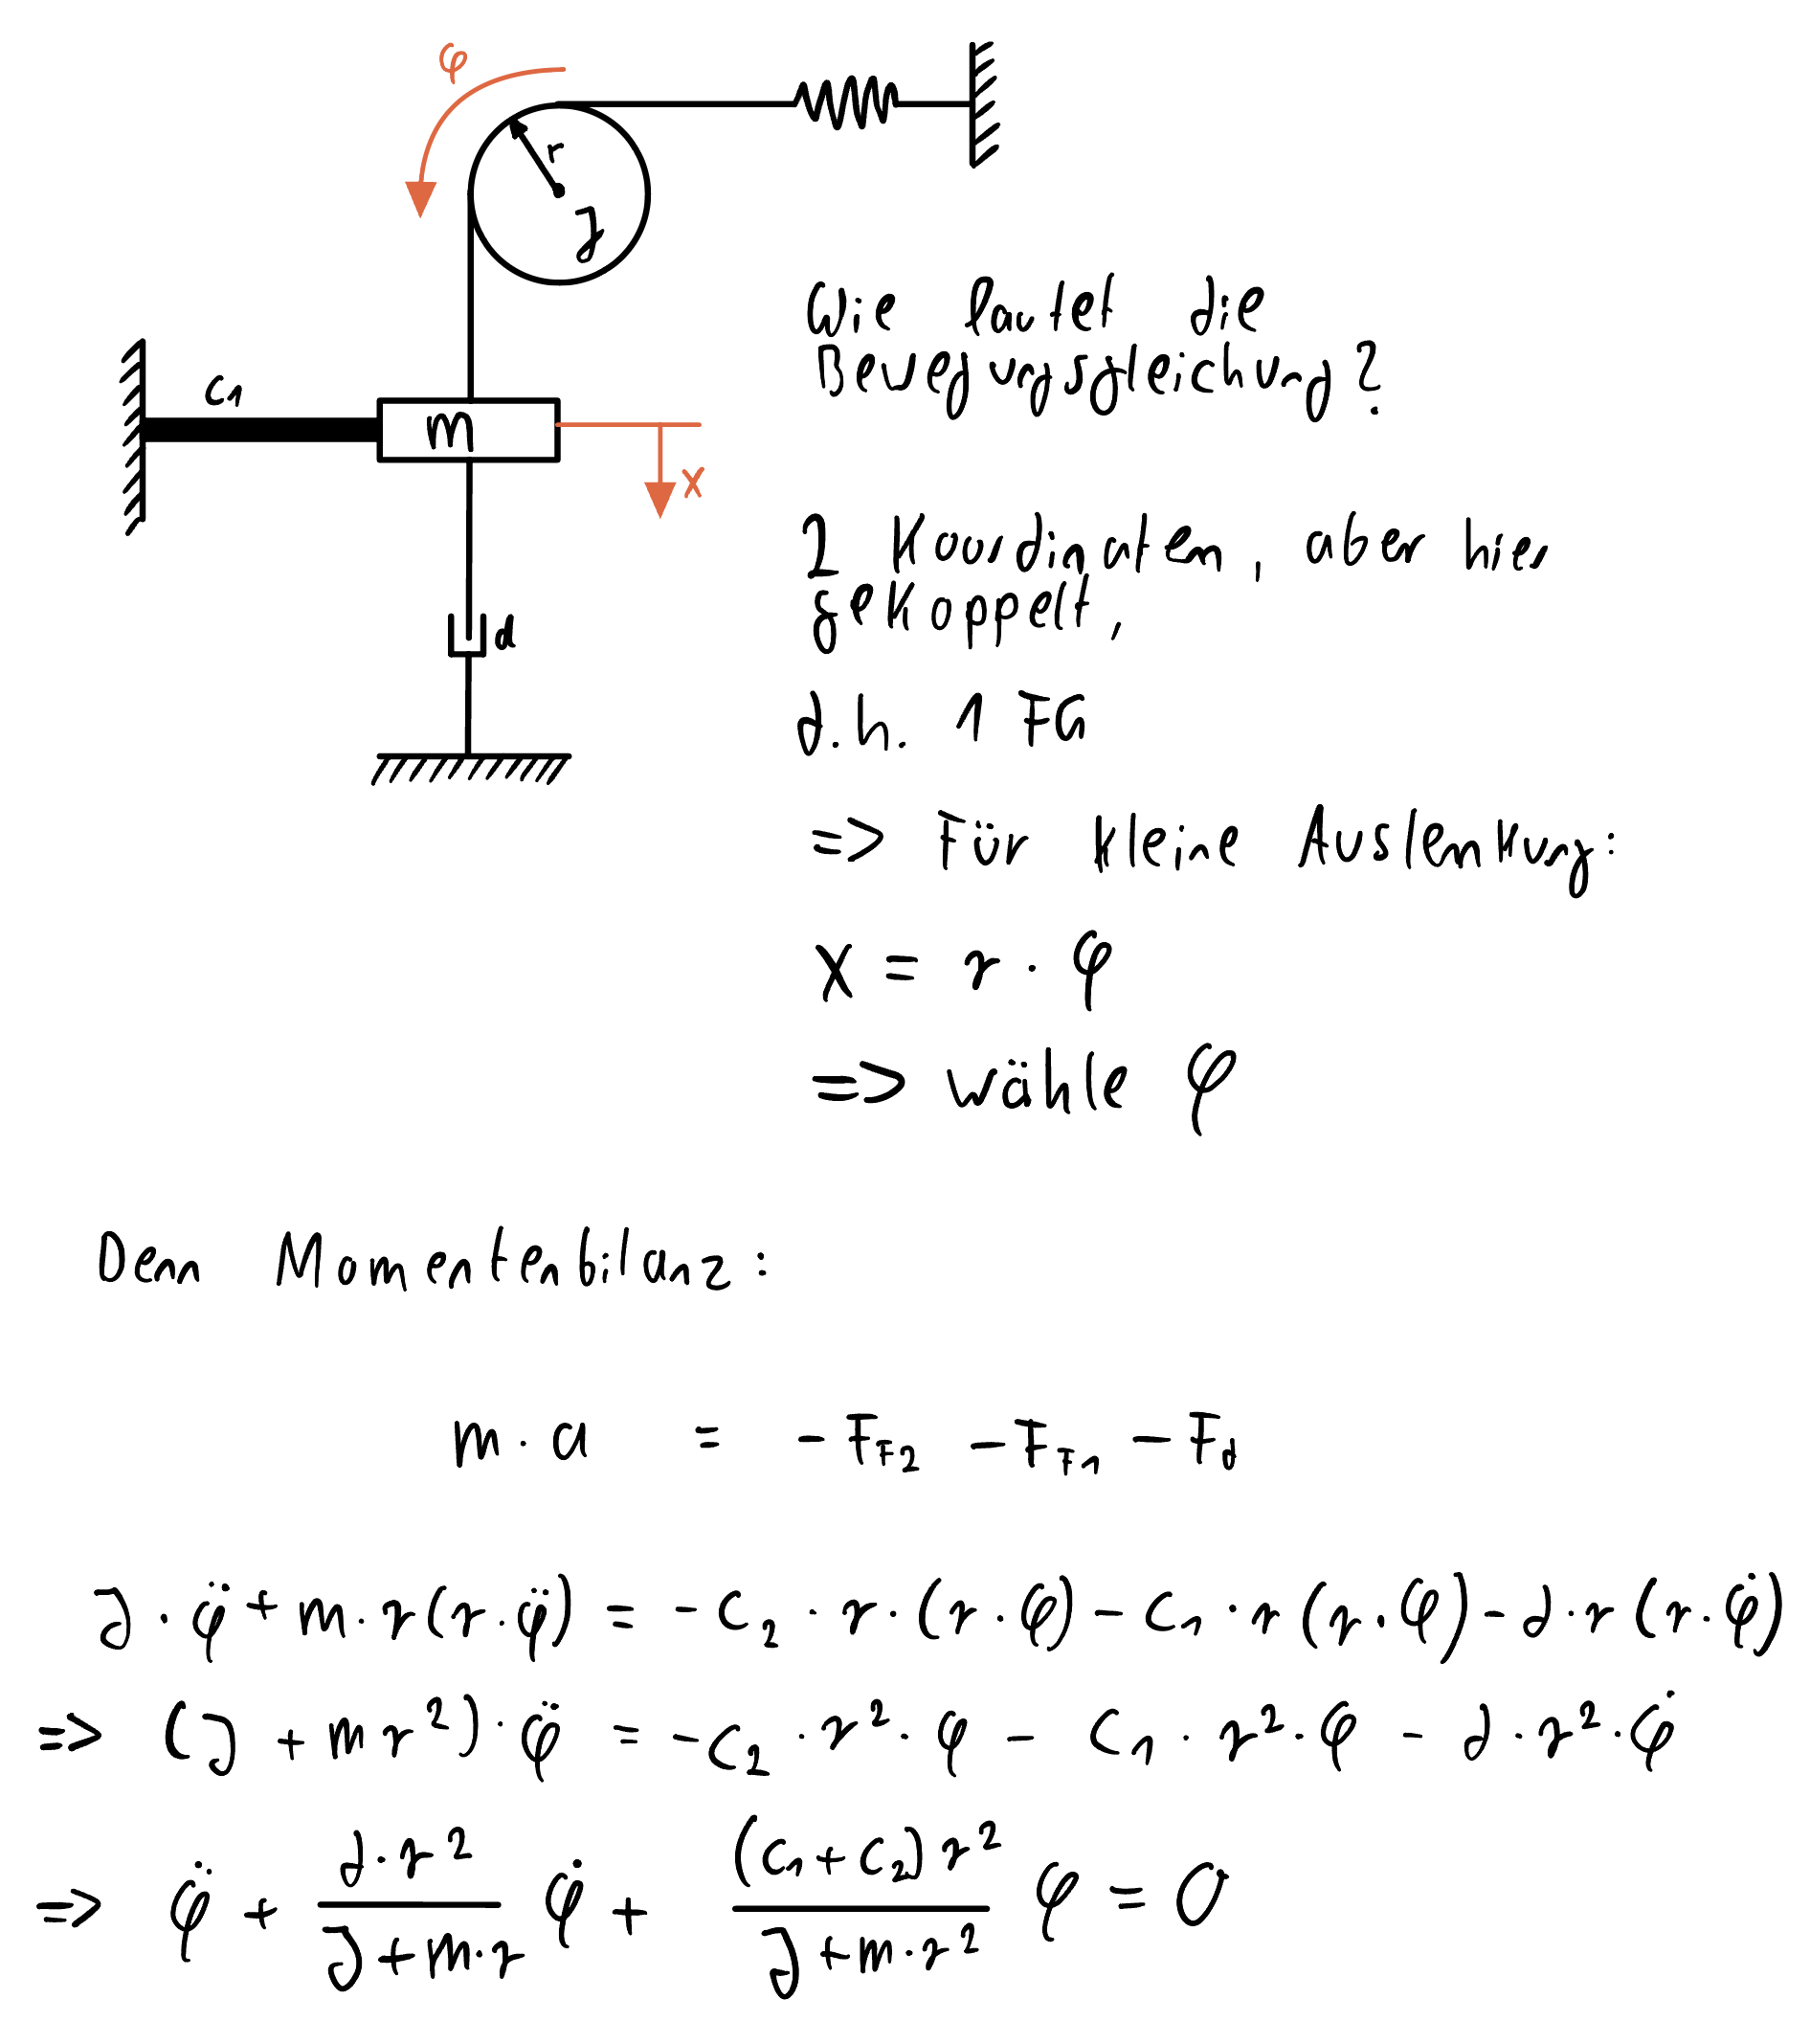 φ
r
J
c₁
m
x
d
Wie lautet die
Bewegungsgleichung?
2 Koordinaten, aber hier
gekoppelt,
d.h. 1 FG
=> Für kleine Auslenkung:
x = r · φ
=> wähle φ
Denn Momentenbilanz:
m · a = - F_F2 - F_F1 - F_d
J · φ̈ + m · r (r · φ̈) = - c₂ · r · (r · φ) - c₁ · r (r · φ) - d · r (r · φ̇)
=> (J + m r²) · φ̈ = - c₂ · r² · φ - c₁ · r² · φ - d · r² · φ̇
=> φ̈ + (d · r²)/(J + m · r) φ̇ + ((c₁ + c₂) r²)/(J + m · r²) φ = 0